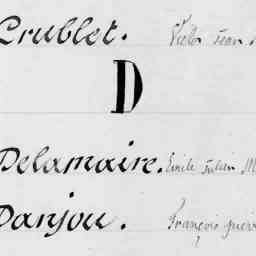 Crublet. Victor Jean
D
Delamaire. Emile Julien M
Danjou. François